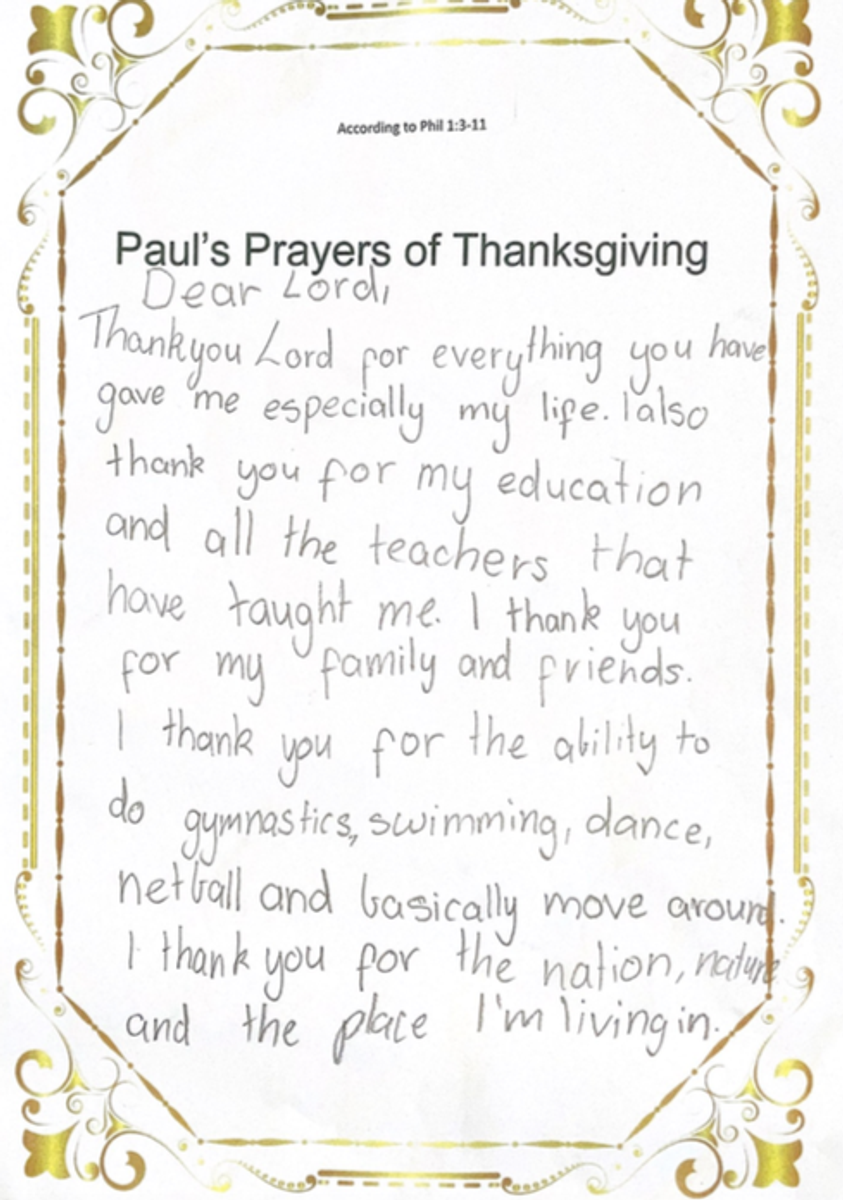 According to Phil 1:3-11
Paul's Prayers of Thanksgiving
Dear Lord,
Thankyou Lord for everything you have
gave me especially my life. I also
thank you for my education
and all the teachers that
have taught me. I thank you
for my family and friends.
I thank you for the ability to
do gymnastics, swimming, dance,
netball and basically move around.
I thank you for the nation, nature
and the place I'm living in.